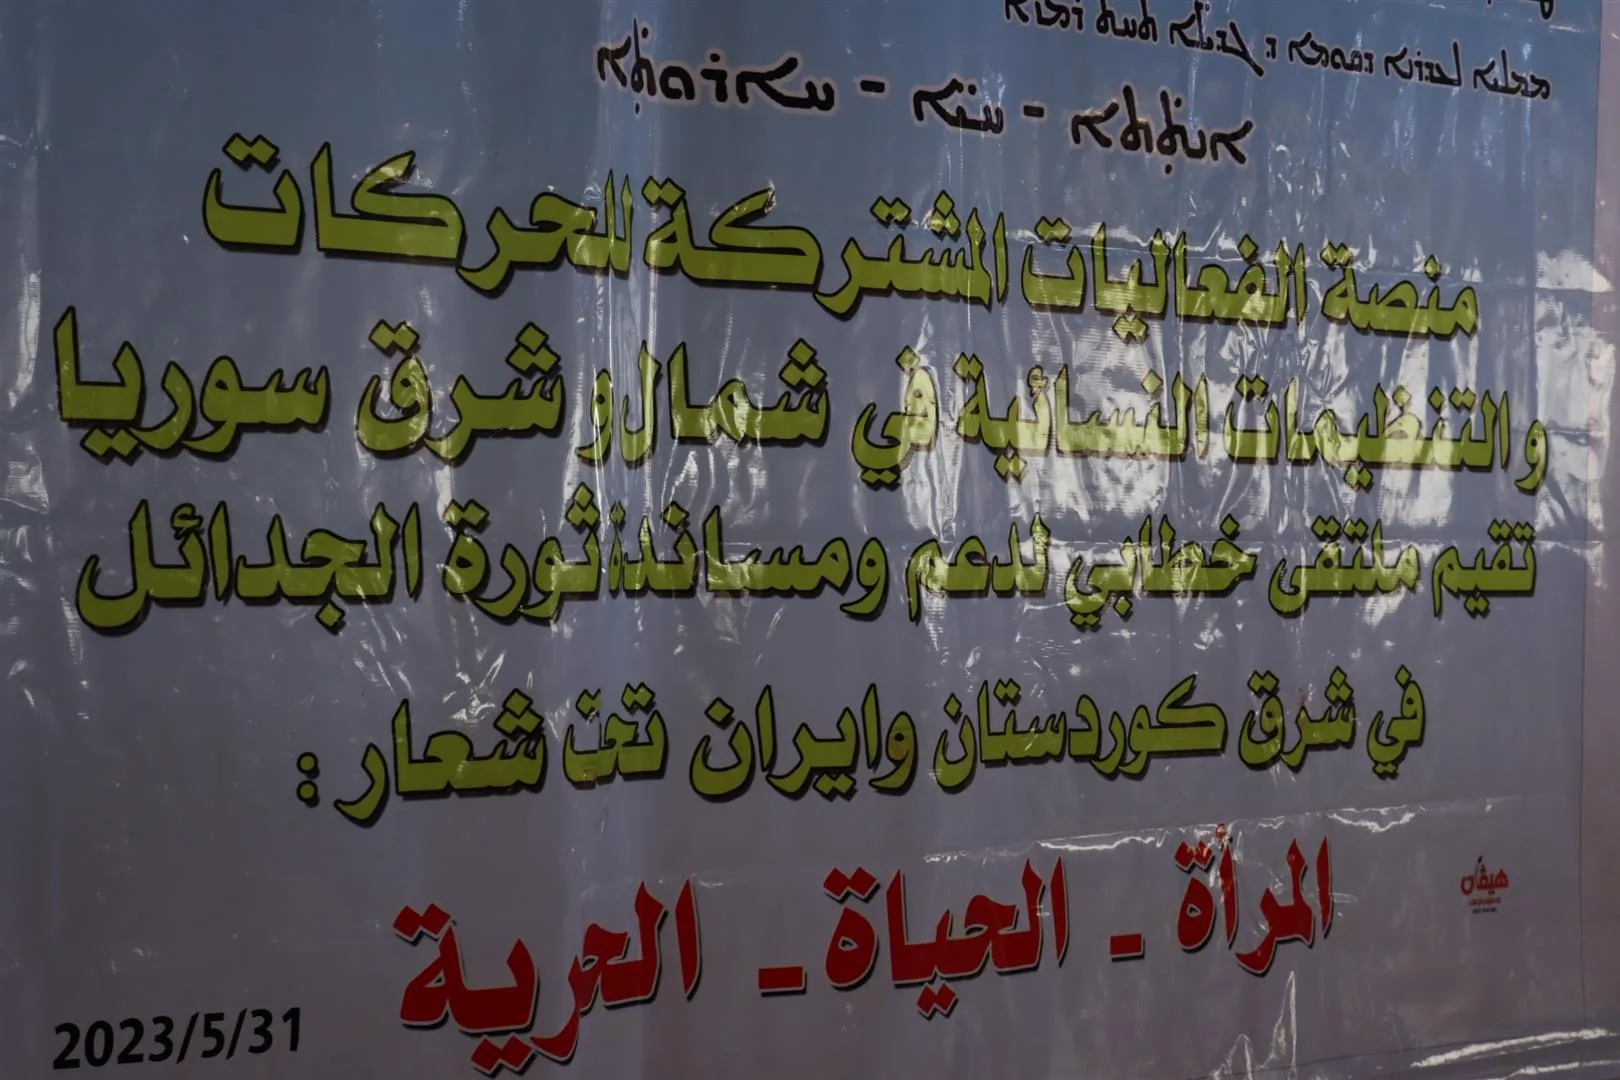 ܐܢܬܬܐ - ܚܝ̈ܐ - ܚܐܪܘܬܐ
منصة الفعاليات المشتركة للحركات
والتنظيمات النسائية في شمال و شرق سوريا
تقيم ملتقى خطابي لدعم ومساندة ثورة الجدائل
في شرق كوردستان وايران تحت شعار :
المرأة - الحياة - الحرية
هيڤان
2023/5/31